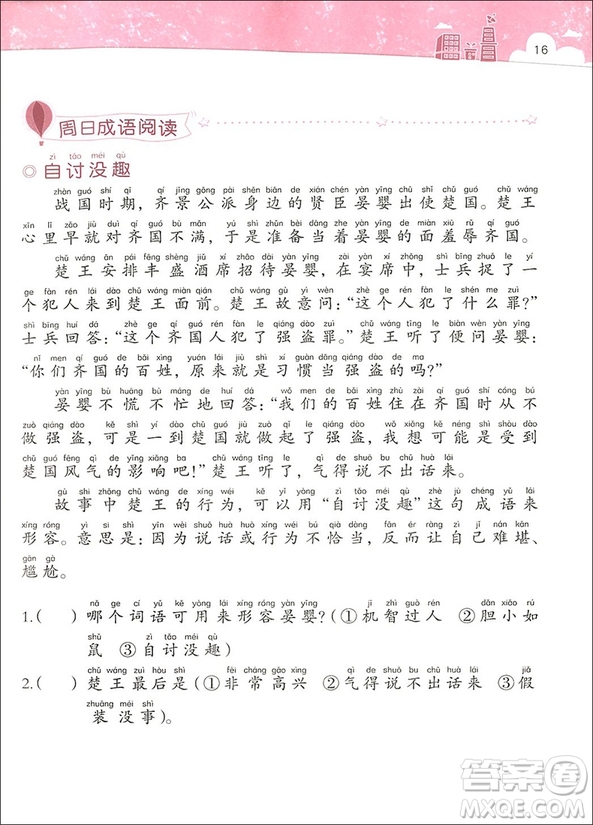 16
周日成语阅读
zì tǎo méi qù
◎ 自讨没趣
zhàn guó shí qī qí jǐng gōng pài shēn biān de xián chén yàn yīng chū shǐ chǔ guó chǔ wáng
战国时期，齐景公派身边的贤臣晏婴出使楚国。楚王
xīn lǐ zǎo jiù duì qí guó bù mǎn yú shì zhǔn bèi dāng zhe yàn yīng de miàn xiū rǔ qí guó
心里早就对齐国不满，于是准备当着晏婴的面羞辱齐国。
chǔ wáng ān pái fēng shèng jiǔ xí zhāo dài yàn yīng zài yàn xí zhōng shì bīng zhuō le yī
楚王安排丰盛酒席招待晏婴，在宴席中，士兵捉了一
gè fàn rén lái dào chǔ wáng miàn qián chǔ wáng gù yì wèn zhè ge rén fàn le shén me zuì
个犯人来到楚王面前。楚王故意问：“这个人犯了什么罪？”
shì bīng huí dá zhè ge qí guó rén fàn le qiáng dào zuì chǔ wáng tīng le biàn wèn yàn yīng
士兵回答：“这个齐国人犯了强盗罪。”楚王听了便问晏婴：
nǐ men qí guó de bǎi xìng yuán lái jiù shì xí guàn dāng qiáng dào de ma
“你们齐国的百姓，原来就是习惯当强盗的吗？”
yàn yīng bù huāng bù máng de huí dá wǒ men de bǎi xìng zhù zài qí guó shí cóng bú
晏婴不慌不忙地回答：“我们的百姓住在齐国时从不
zuò qiáng dào kě shì yí dào chǔ guó jiù zuò qǐ le qiáng dào zuì dà de kě néng shì shòu dào
做强盗，可是一到楚国就做起了强盗，最大的可能是受到
chǔ guó fēng qì de yǐng xiǎng ba chǔ wáng tīng le qì de shuō bu chū huà lái
楚国风气的影响吧！”楚王听了，气得说不出话来。
gù shì zhōng chǔ wáng de xíng wéi kě yǐ yòng zì tǎo méi qù zhè jù chéng yǔ lái
故事中楚王的行为，可以用“自讨没趣”这句成语来
xíng róng yì si shì yīn wèi shuō huà huò xíng wéi bù qià dàng fǎn ér ràng zì jǐ nán kān
形容。意思是：因为说话或行为不恰当，反而让自己难堪、
gān gà
尴尬。
nǎ ge cí yǔ kě yòng lái xíng róng yàn yīng jī zhì guò rén dǎn xiǎo rú
1.( ) 哪个词语可用来形容晏婴？(①机智过人 ②胆小如
shǔ zì tǎo méi qù
鼠 ③自讨没趣)
chǔ wáng zuì hòu shì fēi cháng gāo xìng qì de shuō bu chū huà lái jiǎ
2.( ) 楚王最后是(①非常高兴 ②气得说不出话来 ③假
zhuāng méi shì
装没事)。
答案卷
MXQE.COM